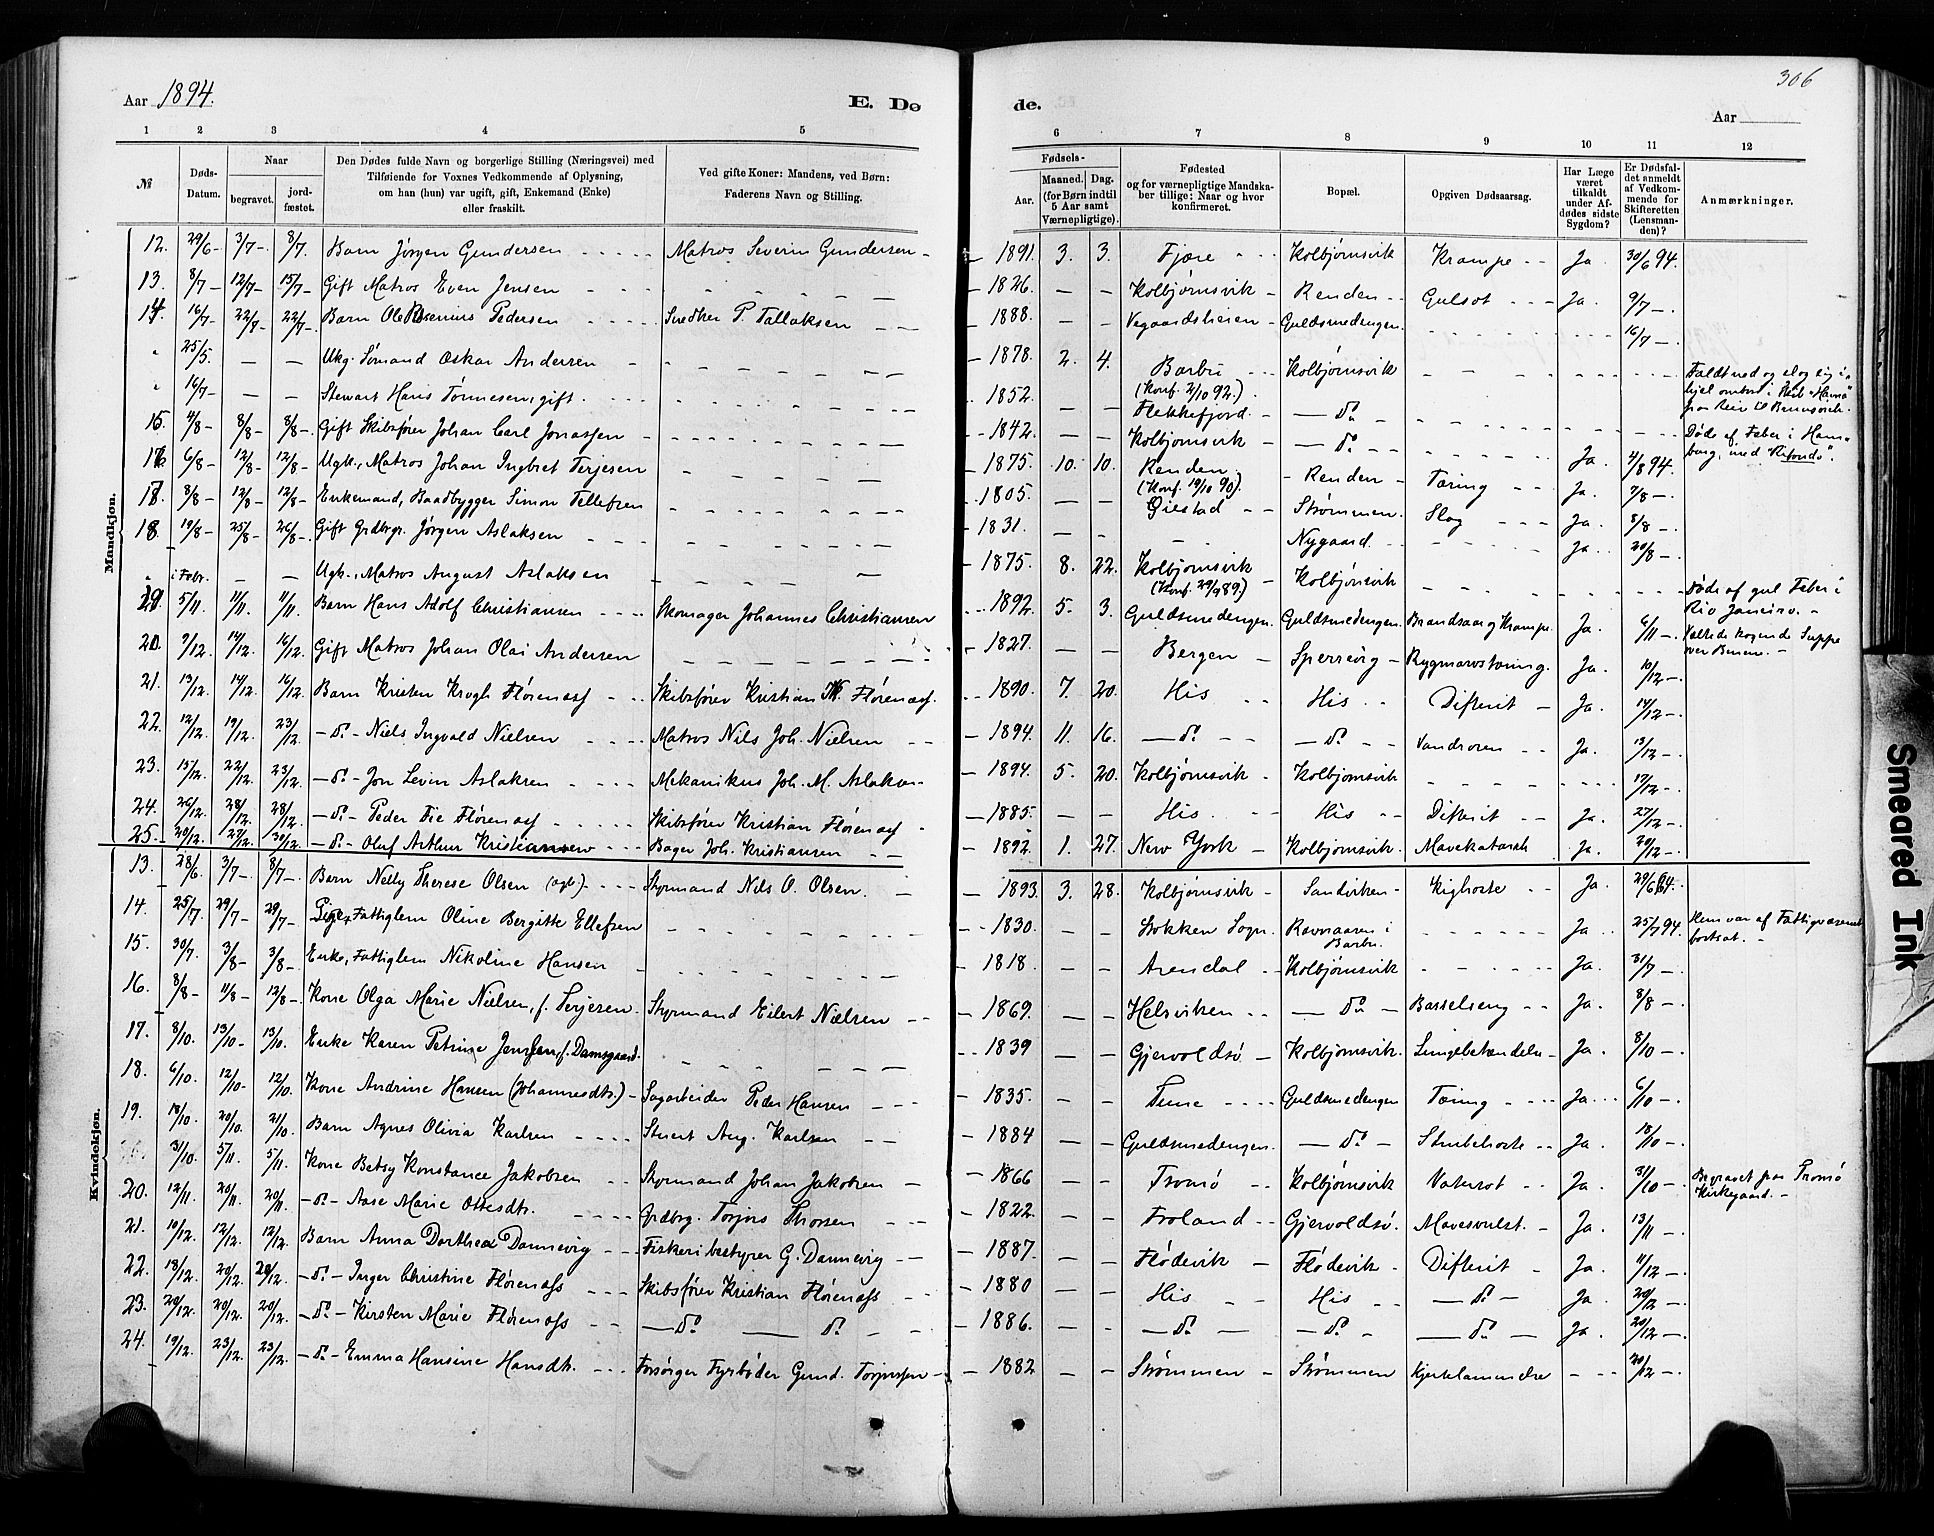 Aar 1894.
E. Dø
de.
306
Aar
1 2 3 4 5
6 7 8 9 10 11 12
№
Døds-Datum.
Naar
begravet.
jord-fæstet.
Den Dødes fulde Navn og borgerlige Stilling (Næringsvei) med
Tilføiende for Voxnes Vedkommende af Oplysning,
om han (hun) var ugift, gift, Enkemand (Enke)
eller fraskilt.
Ved gifte Koner: Mandens, ved Børn:
Faderens Navn og Stilling.
Fødsels-
Aar.
Maaned. Dag.
(for Børn indtil
5 Aar samt
Værnepligtige).
Fødested
og for værnepligtige Mandska-
ber tillige: Naar og hvor
konfirmeret.
Bopæl.
Opgiven Dødsaarsag.
Har Læge
været
tilkaldt
under Af-
dødes sidste
Sygdom?
Er Dødsfal-
det anmeldt
af Vedkom-
mende for
Skifteretten
(Lensman-
den)?
Anmærkninger.
Mandkjøn.
12. 29/6 – 3/7 – 8/7. Barn Jørgen Gundersen Matros Severin Gundersen – 1891. 3. 3. Fjære Kolbjørnsvik Krampe Ja. 30/6 94.
13. 8/7 – 12/7 – 15/7 – Gift Matros Even Jensen – 1826. – – Kolbjørnsvik – Renden Gulsot Ja. 9/7 –
14. 16/7 – 22/8 – 22/7 – Barn Ole Rosenius Pedersen Snedker P. Tallaksen – 1888. – – Vegaardsheien – Guldsmedengen. 16/7 –
" 25/5. – – Ukg. Sømand Oskar Andersen – 1878. 2. 4. Barbu (Konf. 2/10 92.) Kolbjørnsvik Faldt ned og slog sig i-
hjel ombord i Skib "Havnø"
fra Rio til Brunsvik.
" 16/7 – – – Stewart Hans Tønnesen, gift. – 1852. – – Flekkefjord. – do – Døde af Feber i Ham-
burg, med "Rifondo".
15. 4/8 – 8/8 – 8/8 – Gift Skibsfører Johan Carl Jonassen – 1842. – – Kolbjørnsvik – do – Ja. 4/8 94.
16. 6/8 – 12/8 – 12/8 – Ugk., Matros Johan Ingbret Terjesen – 1875. 10. 10. Renden. (Konf. 19/10 90). – Renden – Tæring Ja. 7/8 –
17. 8/8 – 12/8 – 12/8 – Enkemand, Baadbygger Simon Tellefsen – 1805. – – Øiestad Strømmen. Slag Ja. 8/8 –
18. 19/8 – 25/8 – 26/8 – Gift Grdbrgr. Jørgen Aslaksen – 1831. – – – Nygaard Ja. 20/8 –
" i Febr. – – Ugk., Matros August Aslaksen – 1875. 8. 22. Kolbjørnsvik (Konf. 29/9 89.) Kolbjørnsvik Døde af gul Feber i
Rio Janeiro. –
19. 5/11. 11/11. 11/11. Barn Hans Adolf Christiansen Skomager Johannes Christiansen 1892. 5. 3. Guldsmedengen. Guldsmedengen. Brandsaar og Krampe. Ja. 6/11 – Væltede kogende Suppe
over Benene. –
20. 7/12. 14/12. 16/12. Gift Matros Johan Olai Andersen – 1827. – – Bergen – Sperrevig – Rygmarvstæring. Ja. 10/12 –
21. 13/12. 14/12. 16/12. Barn Kristen Krogh Flørenæs Skibsfører Kristian K. Flørenæs. 1890. 7. 20. His His Difterit – Ja. 14/12 –
22. 12/12. 19/12. 23/12. – do – Niels Ingvald Nielsen Matros Nils Joh. Nielsen – 1894. 11. 16. – do – – do – Vandsoren Ja. 13/12 –
23. 15/12. 22/12. 23/12. – do – Jon Levin Aslaksen Mekanikus Joh. M. Aslaksen – 1894. 5. 20. Kolbjørnsvik – Kolbjørnsvik 17/12 –
24. 26/12. 28/12. 28/12. – do – Peder Die Flørenæs Skibsfører Kristian Flørenæs – 1885. – – His. His Difterit Ja. 27/12 –
25. 20/12. 27/12. 30/12. – do – Oluf Arthur Kristiansen Bager Joh. Kristiansen – 1892. 1. 27. New York – Kolbjørnsvik – Mavekatarrh Ja. 20/12 –
Kvindekjøn.
13. 28/6. 3/7 – 8/7 – Barn Nelly Therese Olsen (ægb.) Styrmand Nils O. Olsen. 1893. 3. 28. Kolbjørnsvik – Sandviken – Kighoste Ja. 29/6 94.
14. 25/7. 29/7 – 29/7 – Pige, Fattiglem Oline Bergitte Ellefsen – 1830. – – Stokken Sogn. Ravnaasen i
Barbu. Ja. 25/7 94. Hun var af Fattigvæsenet
bortsat. –
15. 30/7. 3/8 – 3/8 – Enke, Fattiglem Nikoline Hansen – 1818. – – Arendal – Kolbjørnsvik Ja. 31/7 –
16. 8/8 – 11/8 – 12/8 – Kone Olga Marie Nielsen, f. Terjesen. Styrmand Eilert Nielsen – 1869. – – Helsviken – do – Barselseng Ja. 8/8 –
17. 8/10. 13/10 – 13/10. Enke Karen Petrine Jensen, f. Damsgaard. 1839 – – Gjervoldsø – Kolbjørnsvik. Lungebetændelse – Ja. 8/10 –
18. 6/10. 12/10 – 12/10. Kone Andrine Hansen (Johannesdtr.) – Sagarbeider Peder Hansen – 1835. – – Tune Guldsmedengen Tæring Ja. 6/10 –
19. 18/10. 20/10. 21/10. Barn Agnes Olivia Karlsen Stuert Aug. Karlsen – 1884 – – Guldsmedengen. – do – Strubehoste Ja. 18/10 –
31/10. 5/11. 5/11. Kone Betsy Konstance Jakobsen Styrmand Johan Jakobsen – 1866 – – Tromø Kolbjørnsvik Vatersot – Ja. 31/10 – Begravet paa Tromø
Kirkegaard. –
20. 12/11. 20/11. 20/11. – do – Aase Marie Ottesdtr. Grdbrg. Torjus Thorsen – 1822. – – Froland – Gjervoldsø. Mavesvulst. – Ja. 13/11 –
21. 10/12. 12/12. 12/12. Barn Anna Dorthea Dannevig Fiskeribestyrer G. Dannevig – 1887. – – Flødevik – Flødevik – Difterit – Ja. 11/12 –
22. 18/12. 20/12. 20/12. – do – Inger Christine Flørenæs Skibsfører Kristian Flørenæs 1880 – – His His – do – Ja. 20/12 –
23. 20/12. 20/12. 20/12. – do – Kirsten Marie Flørenæs – do – do – 1886. – – – do – – do – – do – Ja. 20/12 –
24. 19/12. 23/12. 23/12. – do – Emma Hansine Hansdtr. Forsørger Fyrbøder Gund. Torjussen – 1882 – – Strømmen – Strømmen Kjertelammedre – 20/12 –
Smeared Ink